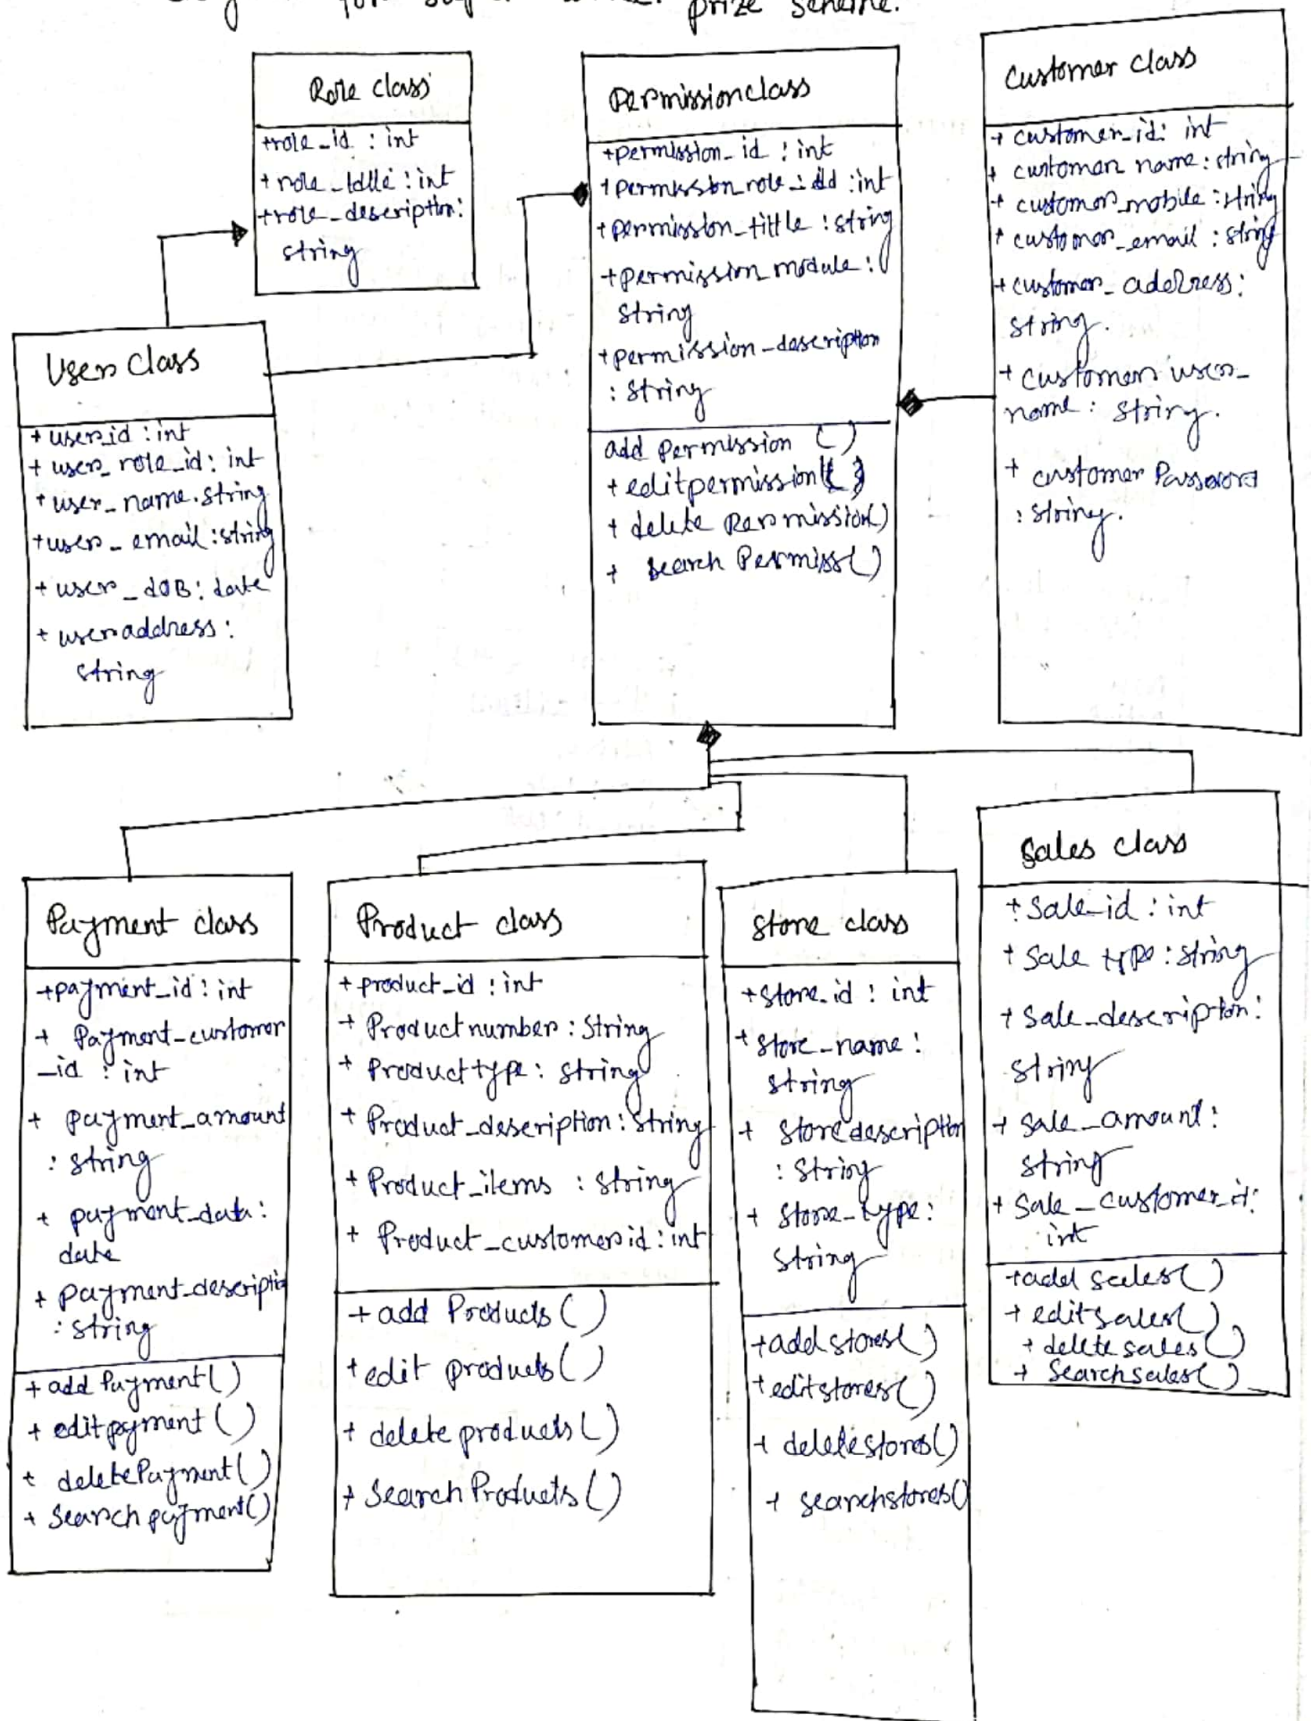 for super prize scheme.
Role class
+role_id : int
+ role_tittle : int
+role_description:
string
Permissionclass
+permission_id : int
+permission_role_id : int
+permission_tittle : string
+permission_module :
string
+permission_description
: string
add permission ()
+ editpermission()
+ delete Permission()
+ search Permiss()
Customer class
+ customer_id: int
+ customer name: string
+ customer_mobile : string
+ customer_email : string
+ customer_address:
string.
+ customer user_
name : string.
+ customer Password
: string.
User class
+ userid : int
+ user_role_id: int
+ user_name.string
+user_email :string
+ user_dOB: date
+ useraddress:
string
Payment class
+payment_id : int
+ Payment_customer
_id : int
+ payment_amount
: string
+ payment_data :
date
+ payment_descriptio
: string
+ add Payment()
+ editpayment ()
+ deletePayment()
+ Search payment()
Product class
+product_id : int
+ Product number : String
+ Product type : string
+ Product_description : String
+ Product_items : string
+ Product_customerid : int
+ add Products ()
+edit products()
+ delete products()
+ Search Products()
Store class
+store_id : int
+ store_name :
string
+ store description
: String
+ store_type :
String
+add stores()
+editstores()
+ deletestores()
+ searchstores()
Sales class
+ Sale_id : int
+ Sale type : string
+ Sale_description :
string
+ Sale_amount :
string
+ Sale_customer_id:
int
+add sales()
+ editsales()
+ delete sales()
+ Searchsales()